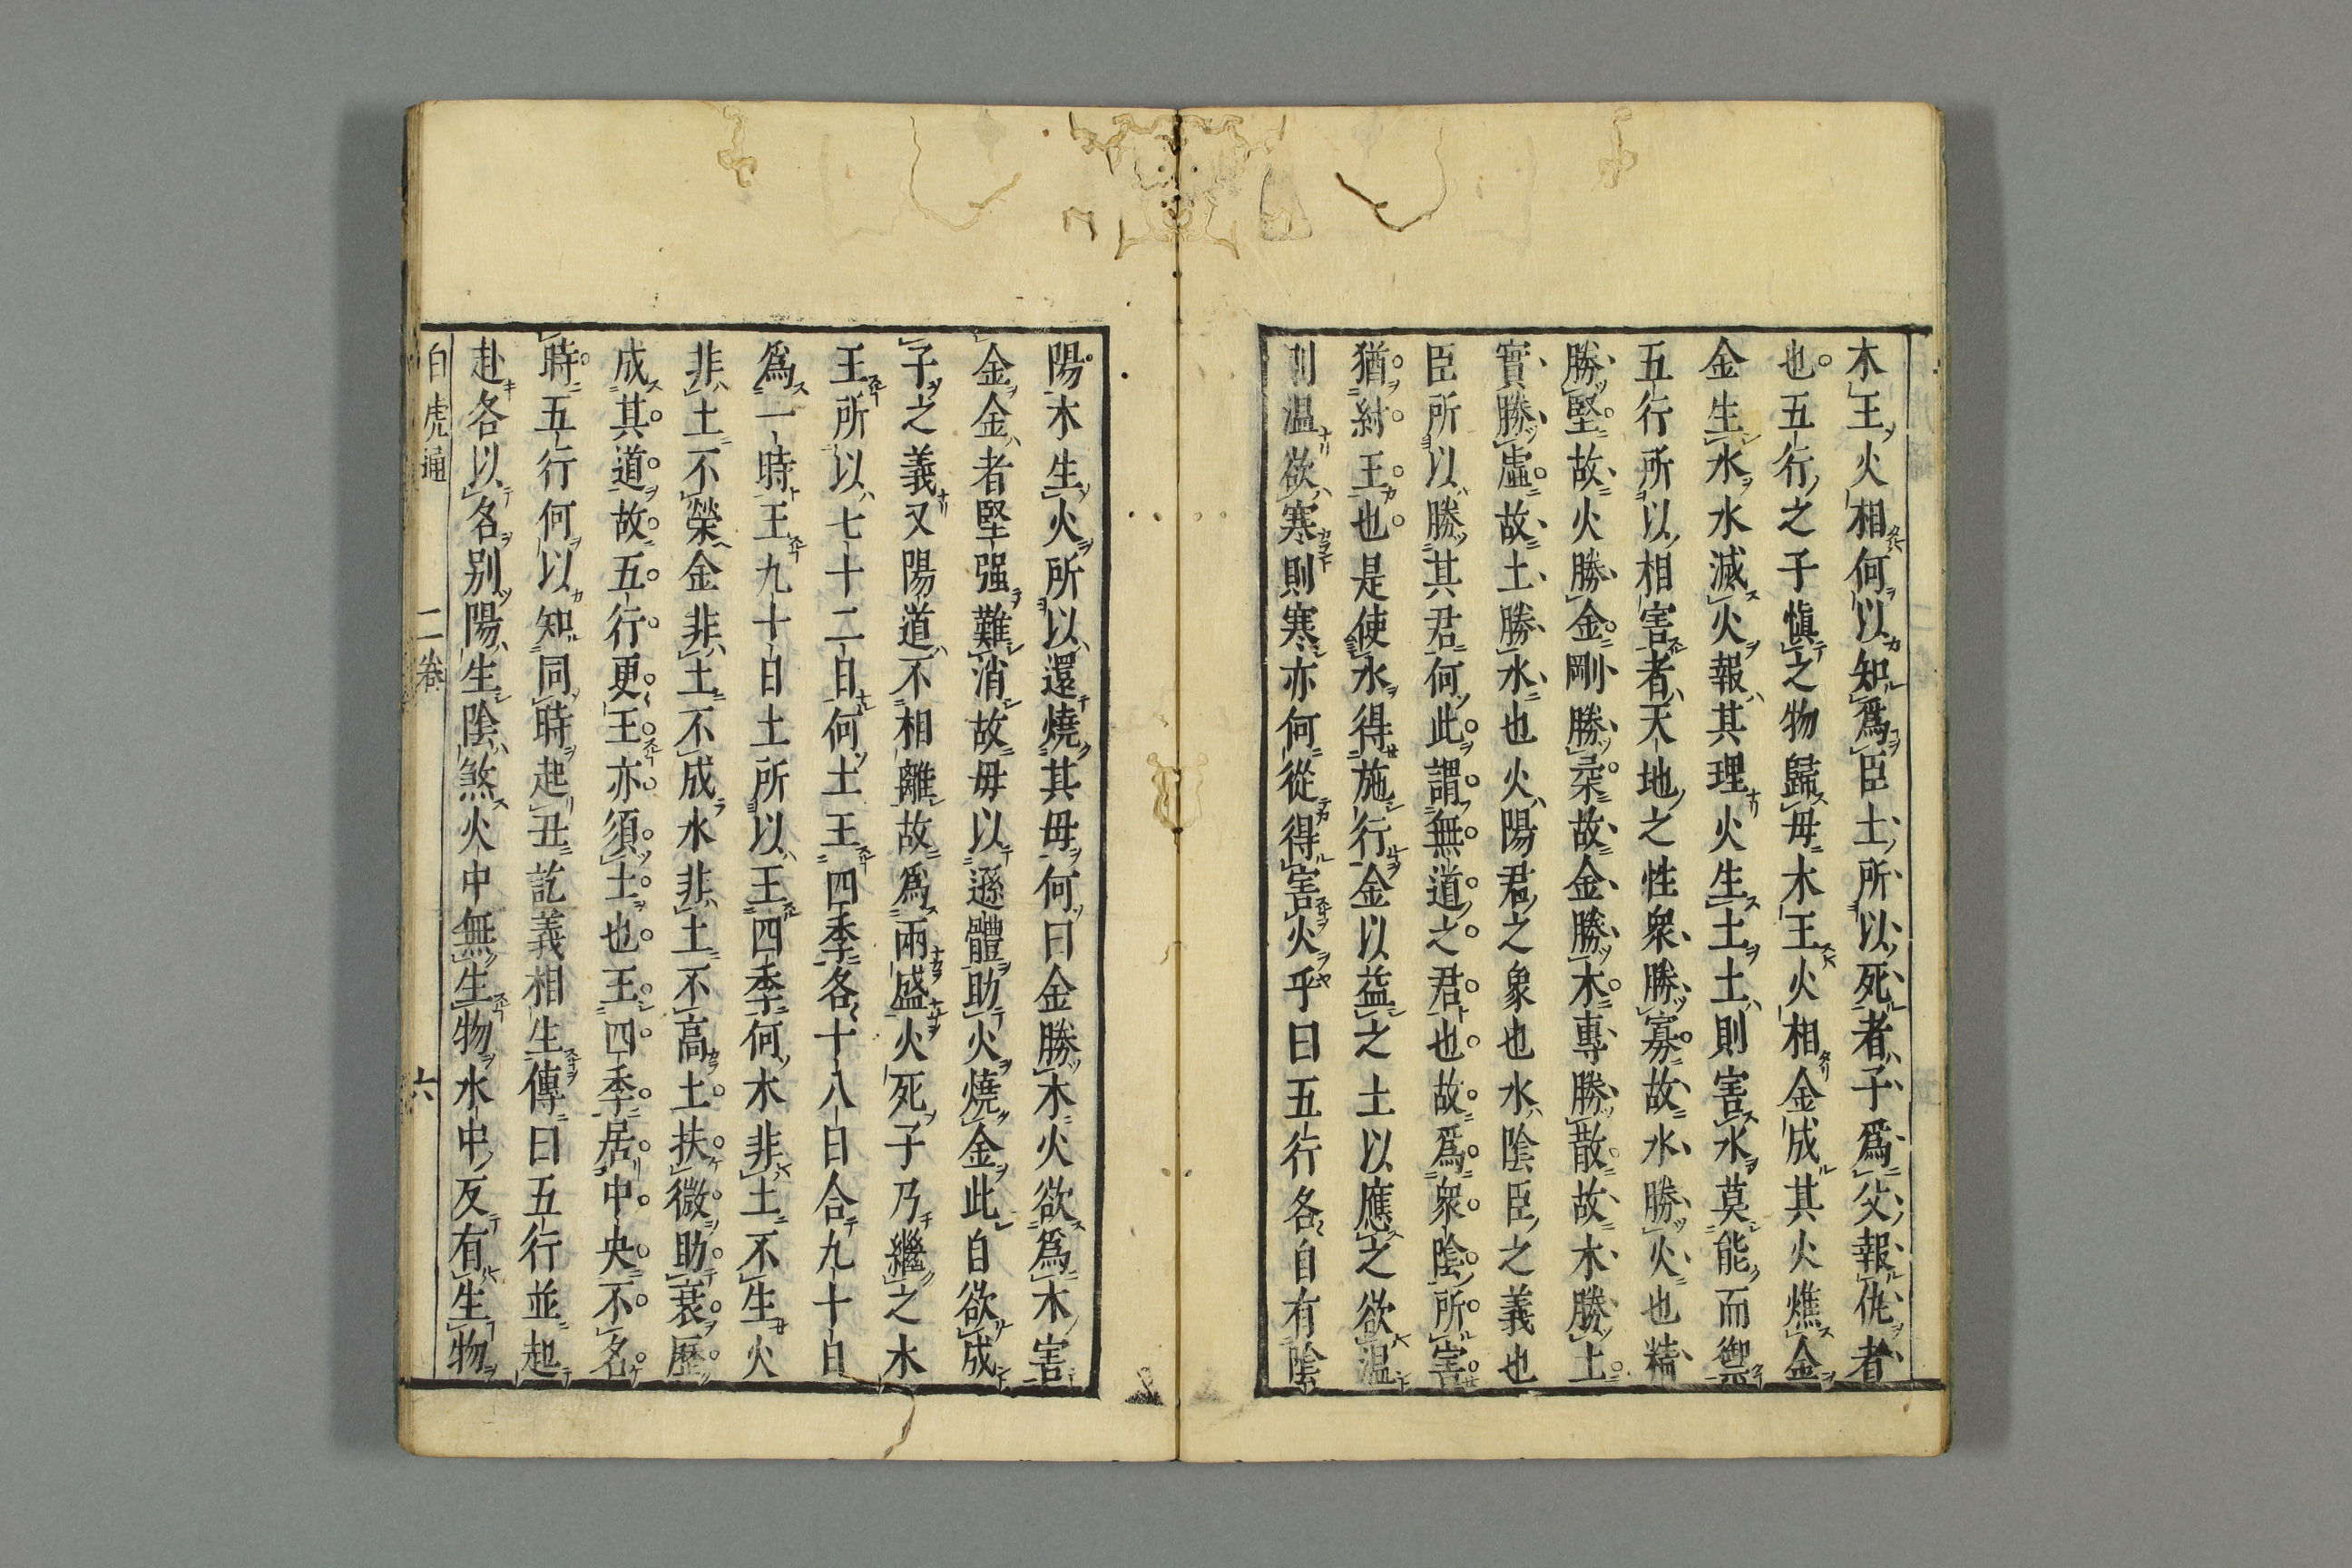 木王火相何以知爲臣土所以死者子爲父報仇者
也五行之子愼之物歸毋木王火相金成其火燋金
金生水水滅火報其理火生土土則害水莫能而禦
五行所以相害者天地之性衆勝寡故水勝火也精
勝堅故火勝金剛勝柔故金勝木專勝散故木勝土
實勝虛故土勝水也火陽君之象也水陰臣之義也
臣所以勝其君何此謂無道之君也故爲衆陰所害
猶紂王也是使水得施行金以益之土以應之欲温
則温欲寒則寒亦何從得害火乎曰五行各自有陰
陽木生火所以還燒其毋何曰金勝木火欲爲木害
金金者堅强難消故毋以遜體助火燒金此自欲成
子之義又陽道不相離故爲兩盛火死子乃繼之木
王所以七十二日何土王四季各十八日合九十日
爲一時王九十日土所以王四季何木非土不生火
非土不榮金非土不成水非土不高土扶微助衰歷
成其道故五行更王亦須土也王四季居中央不名
時五行何以知同時起丑訖義相生傳曰五行並起
赴各以名别陽生陰煞火中無生物水中反有生物
白虎通 二卷 六